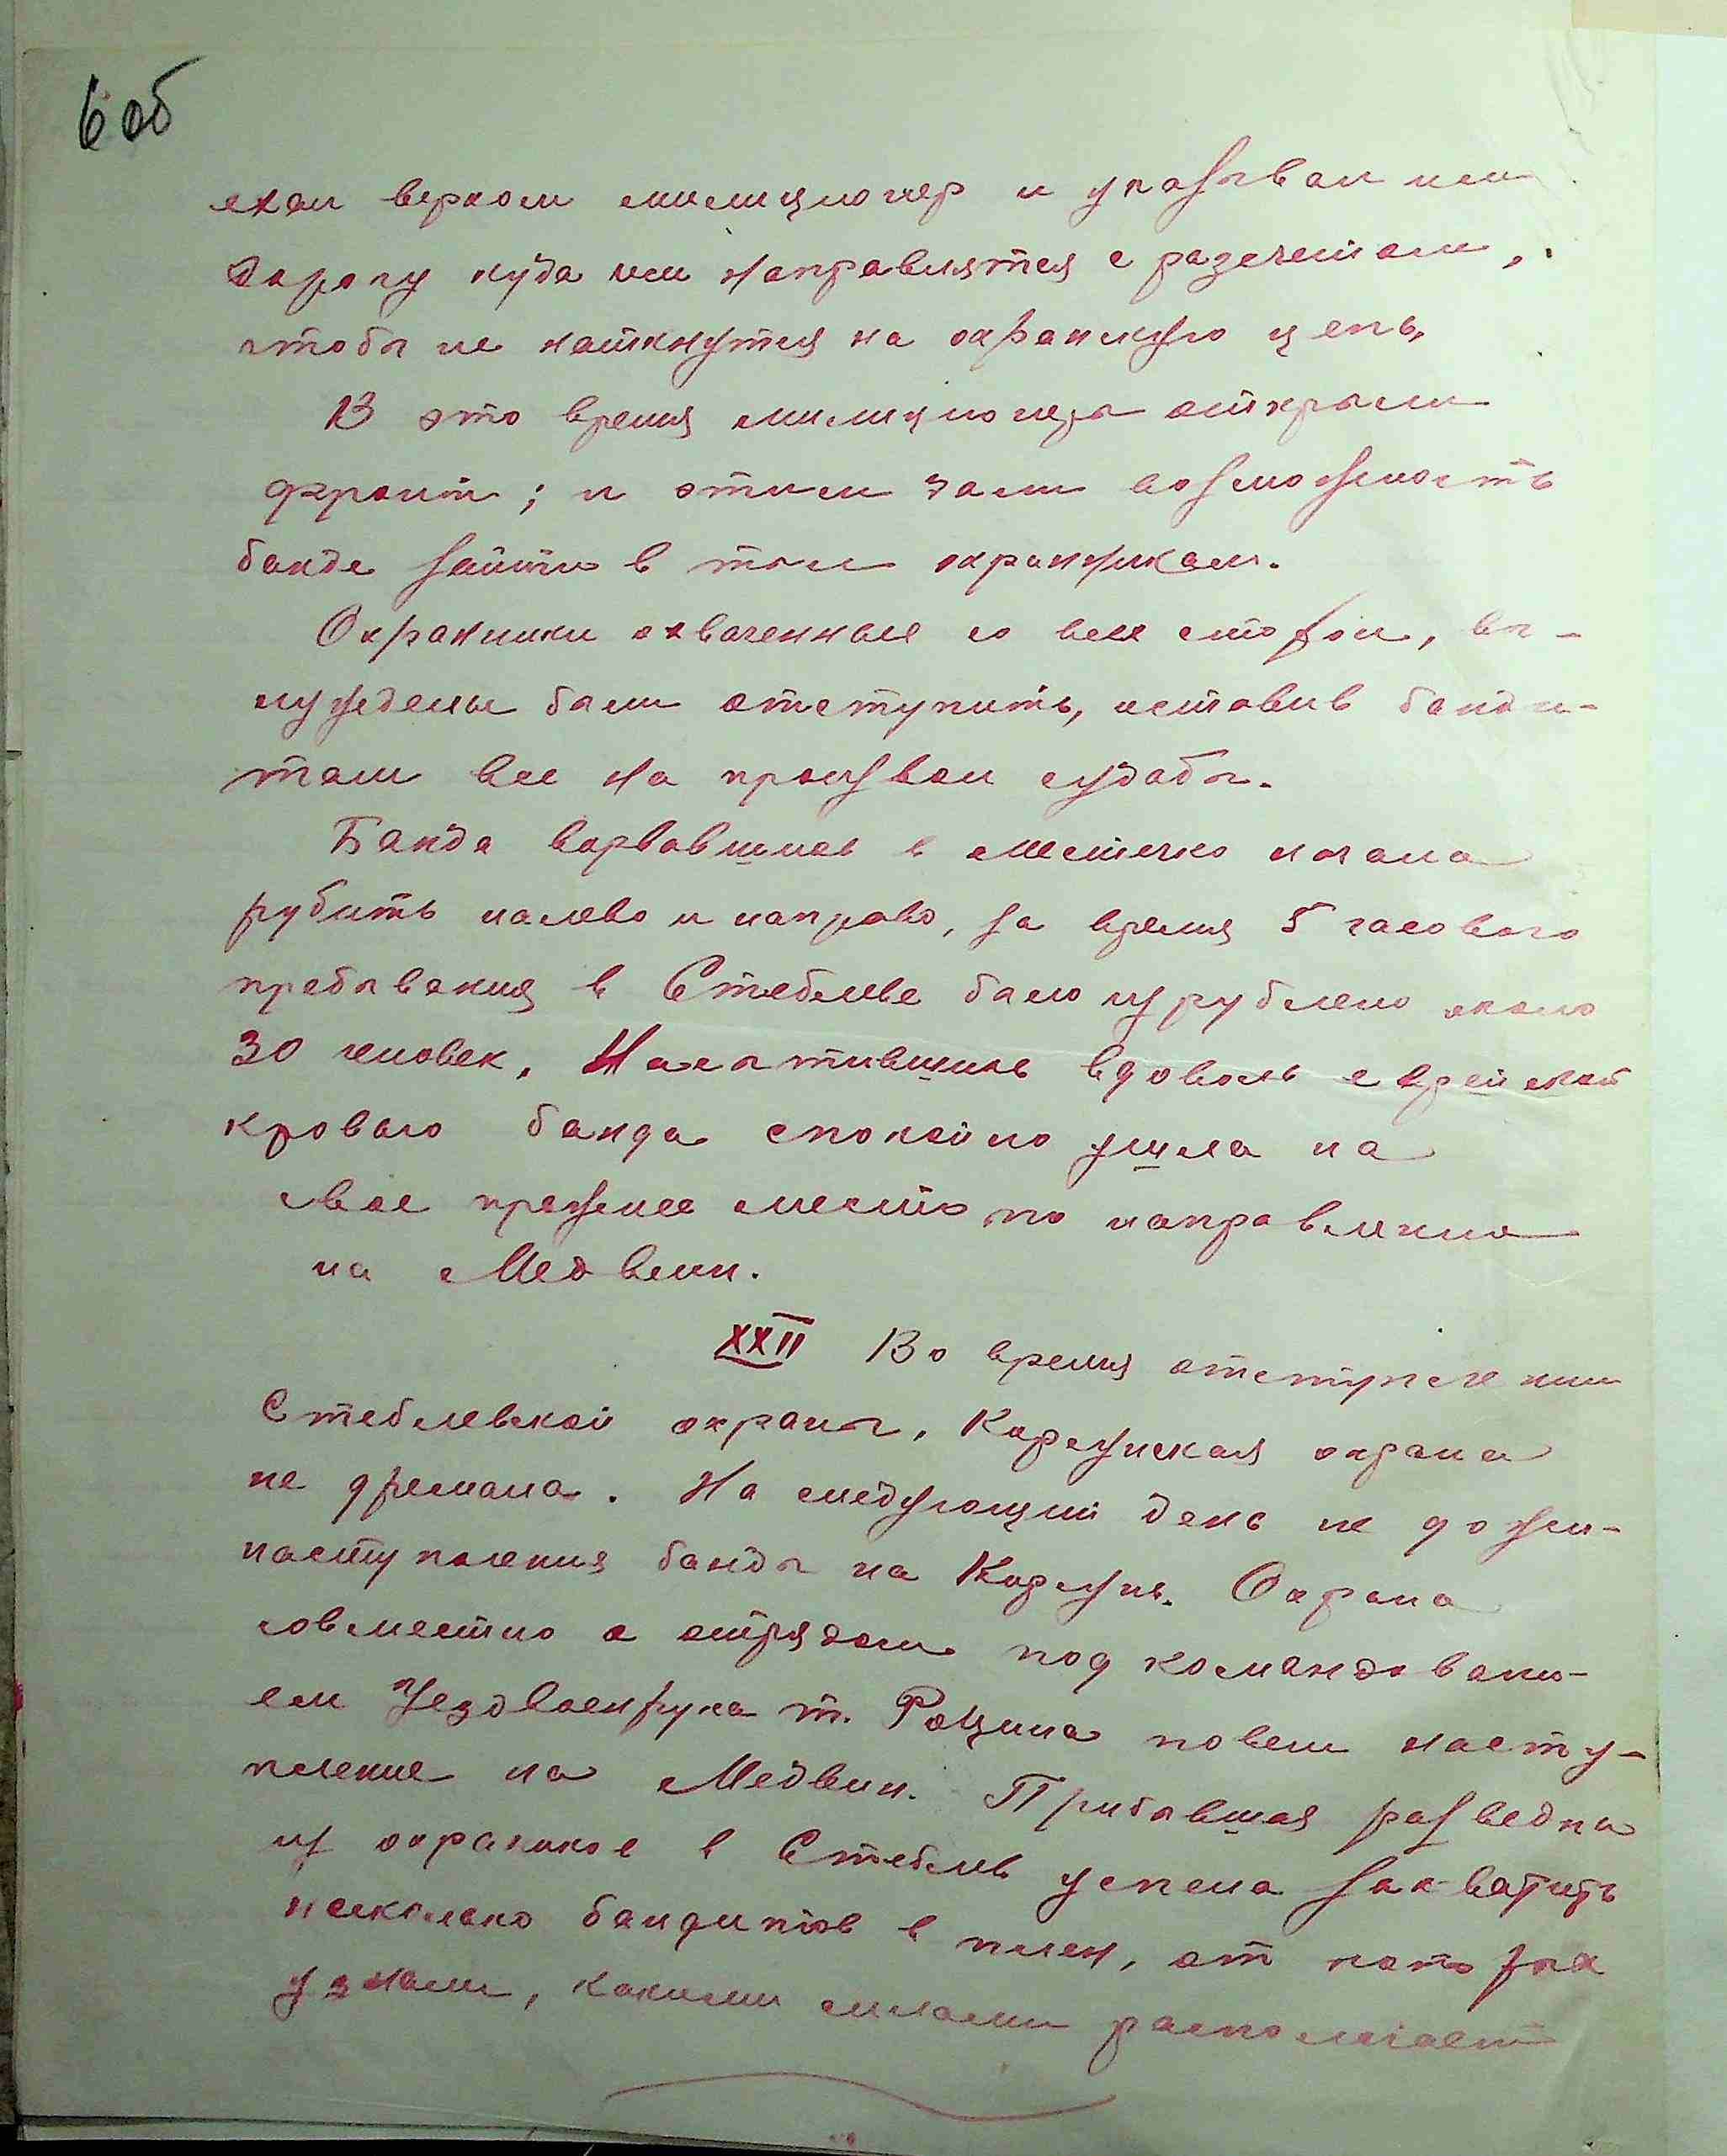 6 об
ехал верхом милиционер и указывал им
дорогу куда им направлятся с разсчетом,
чтобы не наткнутся на охранную цепь,
В это время милиционеры открыли
фронт; и этим дали возможность
банде зайти в тыл охранникам.
Охранники охваченные со всех сторон, вы-
нуждены были отступить, оставив банди-
там все на произвол судьбы.
Банда ворвавшись в местечко начала
рубить налево и направо, за время 5 часового
пребывания в Стеблеве было изрублено около
30 человек. Насытившись вдоволь еврейской
кровью банда спокойно ушла на
свое прежнее место по направлению
на Медвин.
XXII Во время отступления
Стеблевской охраны, Корсунская охрана
не дремала. На следующий день не дожи-
наступления банды на Корсунь. Охрана
совместно с отрядом под командовани-
ем Уездвоенрука т. Рощина повели насту-
пление на Медвин. Прибывшая разведка
из охранников в Стеблев успела захватить
несколько бандитов в плен, от которых
узнали, какими силами располагает